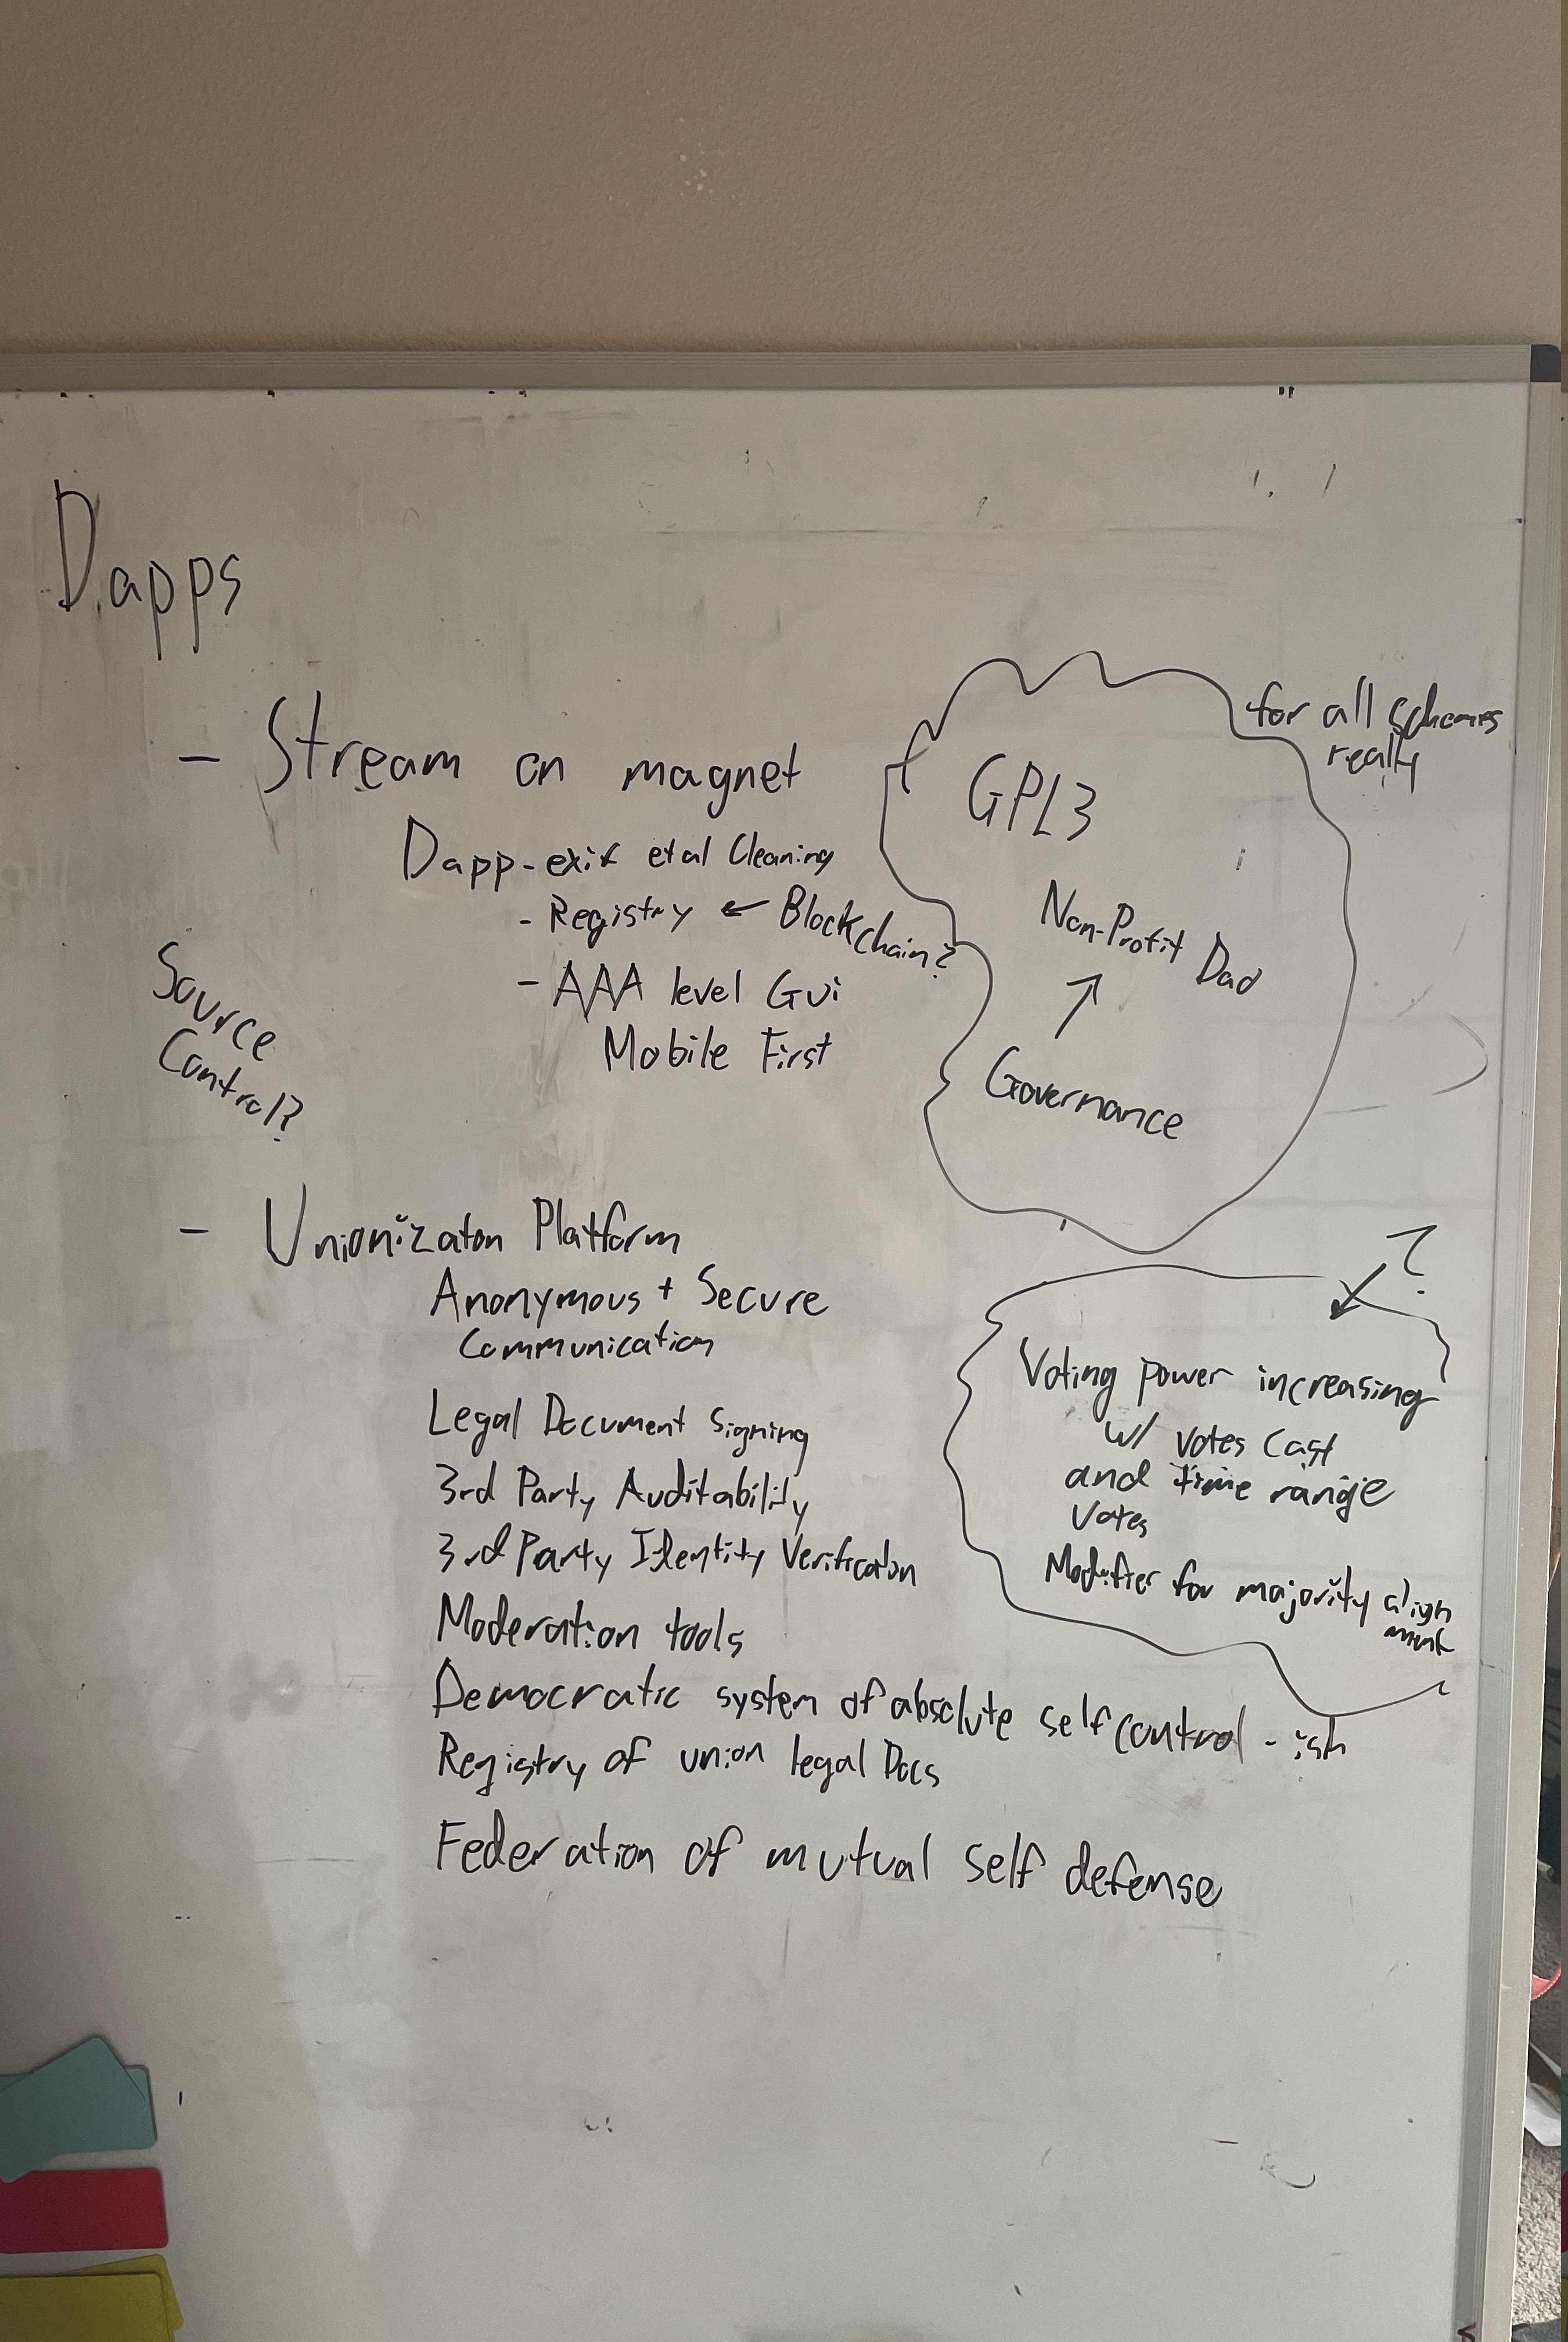 Dapps
- Stream on magnet
Dapp-exif etal Cleaning
- Registry ← Blockchain?
- AAA level Gui
Mobile First
Source
Control?
for all schemes
really
GPL3
Non-Profit Dao
Governance
- Unionizaton Platform
Anonymous + Secure
Communication
Legal Document Signing
3rd Party Auditability
3rd Party Identity Verificaton
Moderation tools
Democratic system of absolute self control - ish
Registry of union legal Docs
Federation of mutual self defense
?
Voting power increasing
w/ votes cast
and time range
votes
Modifier for majority align
ment